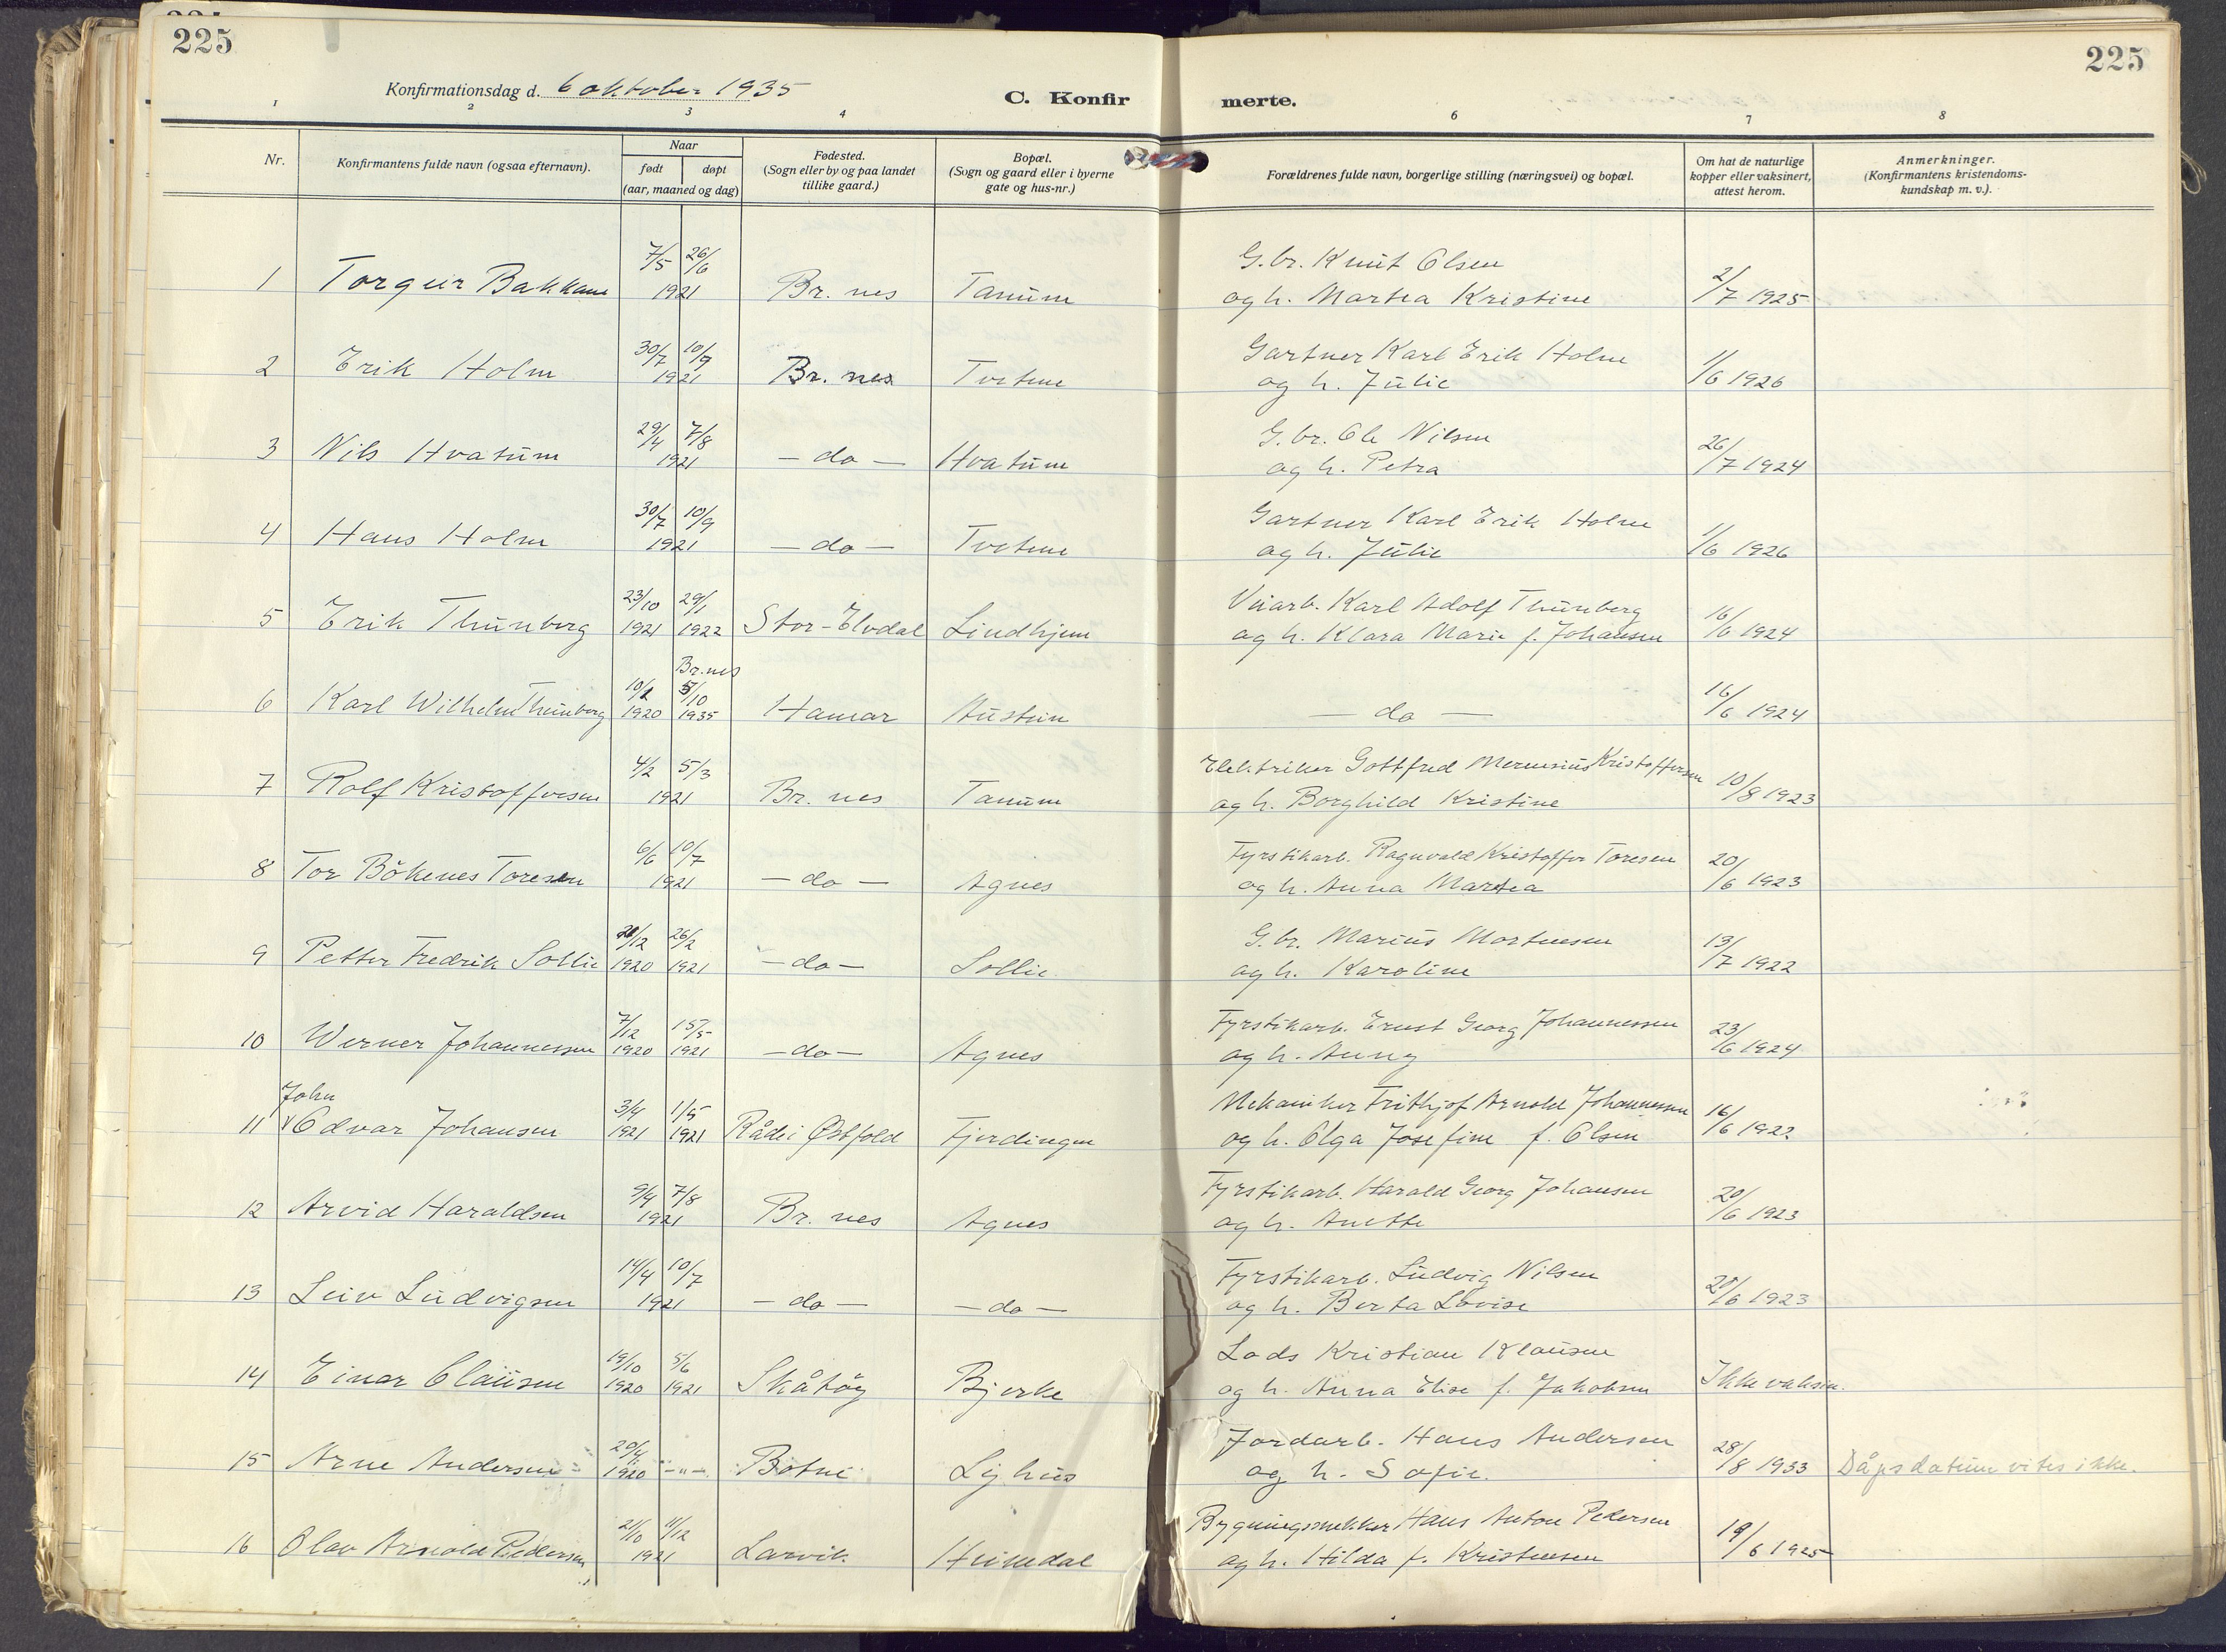 225
225
Konfirmationsdag d. 6 oktober 1935
C. Konfirmerte.
1 2 3 4 6 7 8
Nr.
Konfirmantens fulde navn (ogsaa efternavn).
Naar
født døpt
(aar, maaned og dag)
Fødested.
(Sogn eller by og paa landet
tillike gaard.)
Bopæl.
(Sogn og gaard eller i byerne
gate og hus-nr.)
Forældrenes fulde navn, borgerlige stilling (næringsvei) og bopæl.
Om hat de naturlige
kopper eller vaksinert,
attest herom.
Anmerkninger.
(Konfirmantens kristendoms-
kundskap m. v.).
7/5 26/6 G.br. Knut Olsen
1 Torgeir Bakkane 1921 Br. nes Tanum og h. Martea Kristine 2/7 1925
30/7 10/9 Gartner Karl Erik Holm
2 Erik Holm 1921 Br. nes Tvetene og h. Julie 1/6 1926
29/4 7/8 G.br. Ole Nilsen
3 Nils Hvatum 1921 - do - Hvatum og h. Petra 26/7 1924
30/7 10/9 Gartner Karl Erik Holm
4 Hans Holm 1921 - do - Tvetene og h. Julie 1/6 1926
23/10 29/1 Veiarb. Karl Adolf Thunberg
5 Erik Thunberg 1921 1922 Stor-Elvdal Lindhjem og h. Klara Marie f. Johansen 16/6 1924
Br.nes
10/2 5/10
6 Karl Wilhelm Thunberg 1920 1935 Hamar Austein - do - 16/6 1924
4/2 5/3 Elektriker Gottfred Merensius Kristoffersen
7 Rolf Kristoffersen 1921 Br. nes Tanum og h. Borghild Kristine 10/8 1923
6/6 10/7 Fyrstikarb. Ragnvald Kristoffer Toresen
8 Tor Bökenes Toresen 1921 - do - Agnes og h. Anna Martea 20/6 1923
/12 26/2 G. br. Marius Mortensen
9 Petter Fredrik Sollie 1920 1921 - do - Sollie og h. Karoline 13/7 1922
7/12 15/5 Fyrstikarb. Ernst Georg Johannessen
10 Werner Johannessen 1920 1921 - do - Agnes og h. Anny 23/6 1924
John 3/4 1/5 Mekaniker Frithjof Arnold Johannessen
11 Edvar Johansen 1921 1921 Råde i Østfold Fjerdingen og h. Olga Josefine f. Olsen 16/6 1922
9/4 7/8 Fyrstikarb. Harald Georg Johansen
12 Arvid Haraldsen 1921 Br. nes Agnes og h. Anette 20/6 1923
14/4 10/7 Fyrstikarb. Ludvig Nilsen
13 Leiv Ludvigsen 1921 - do - - do - og h. Berta Lovise 20/6 1923
19/10 5/6 Lods Kristian Klausen
14 Einar Clausen 1920 1921 Skåtöy Bjerke og h. Anna Elise f. Jakobsen Ikke vaksin.
20/4 Jordarb. Hans Andersen
15 Arne Andersen 1920 -"- Botne Lighus og h. Sofie. 28/8 1933 Dåpsdatum vites ikke.
21/10 11/12 Bygningssnekker Hans Anton Pedersen
16 Olav Arnold Pedersen 1921 Larvik Heimdal og h. Hilda f. Kristensen 19/6 1925